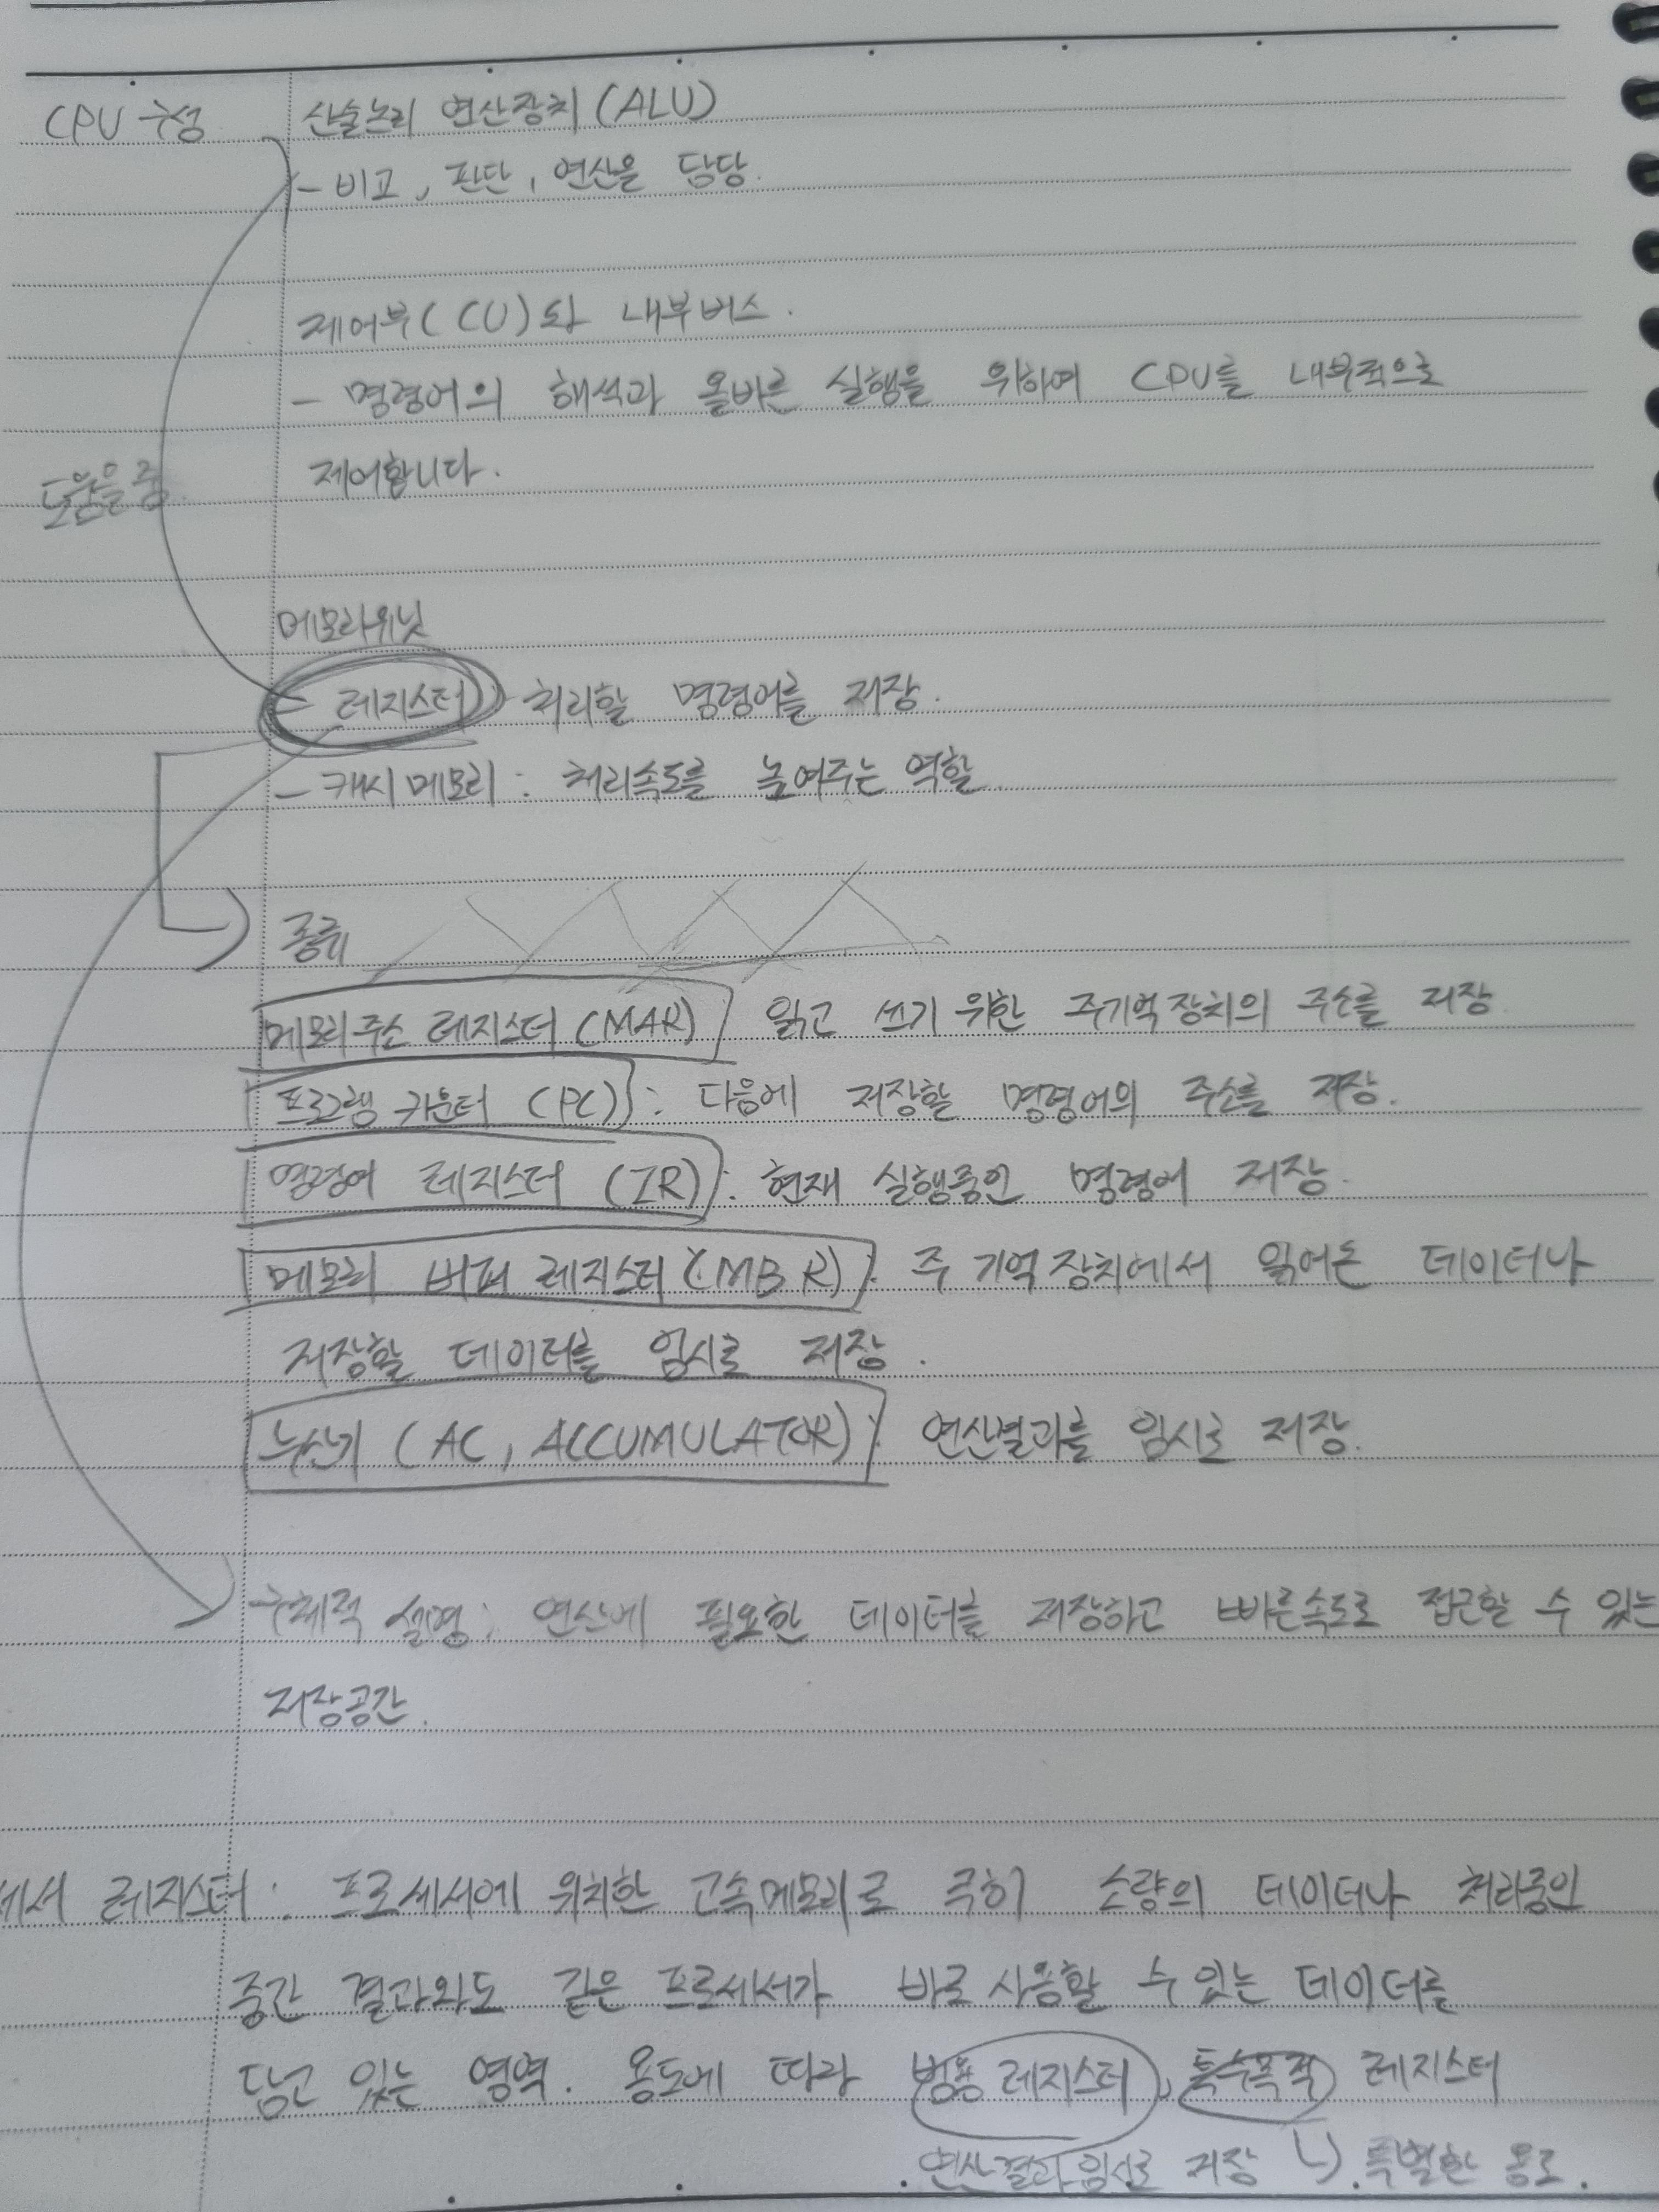 CPU 구성
산술논리 연산장치 (ALU)
- 비교, 판단, 연산을 담당.
제어부(CU)와 내부버스.
- 명령어의 해석과 올바른 실행을 위하여 CPU를 내부적으로
제어합니다.
도움을 줌
메모리유닛
- 레지스터 처리할 명령어를 저장.
- 캐시메모리 : 처리속도를 높여주는 역할
종류
메모리주소 레지스터 (MAR) 읽고 쓰기 위한 주기억장치의 주소를 저장
프로그램 카운터 (PC) : 다음에 저장할 명령어의 주소를 저장.
명령어 레지스터 (IR) : 현재 실행중인 명령어 저장.
메모리 버퍼 레지스터 (MBR) : 주 기억장치에서 읽어온 데이터나
저장할 데이터를 임시로 저장.
누산기 (AC, ACCUMULATOR) : 연산결과를 임시로 저장.
구체적 설명 : 연산에 필요한 데이터를 저장하고 빠른속도로 접근할 수 있는
저장공간.
세서 레지스터 : 프로세서에 위치한 고속메모리로 극히 소량의 데이터나 처리중인
중간 결과와도 같은 프로세서가 바로 사용할 수 있는 데이터를
담고 있는 영역. 용도에 따라 범용 레지스터, 특수목적 레지스터
. 연산결과 임시로 저장 . 특별한 용도.